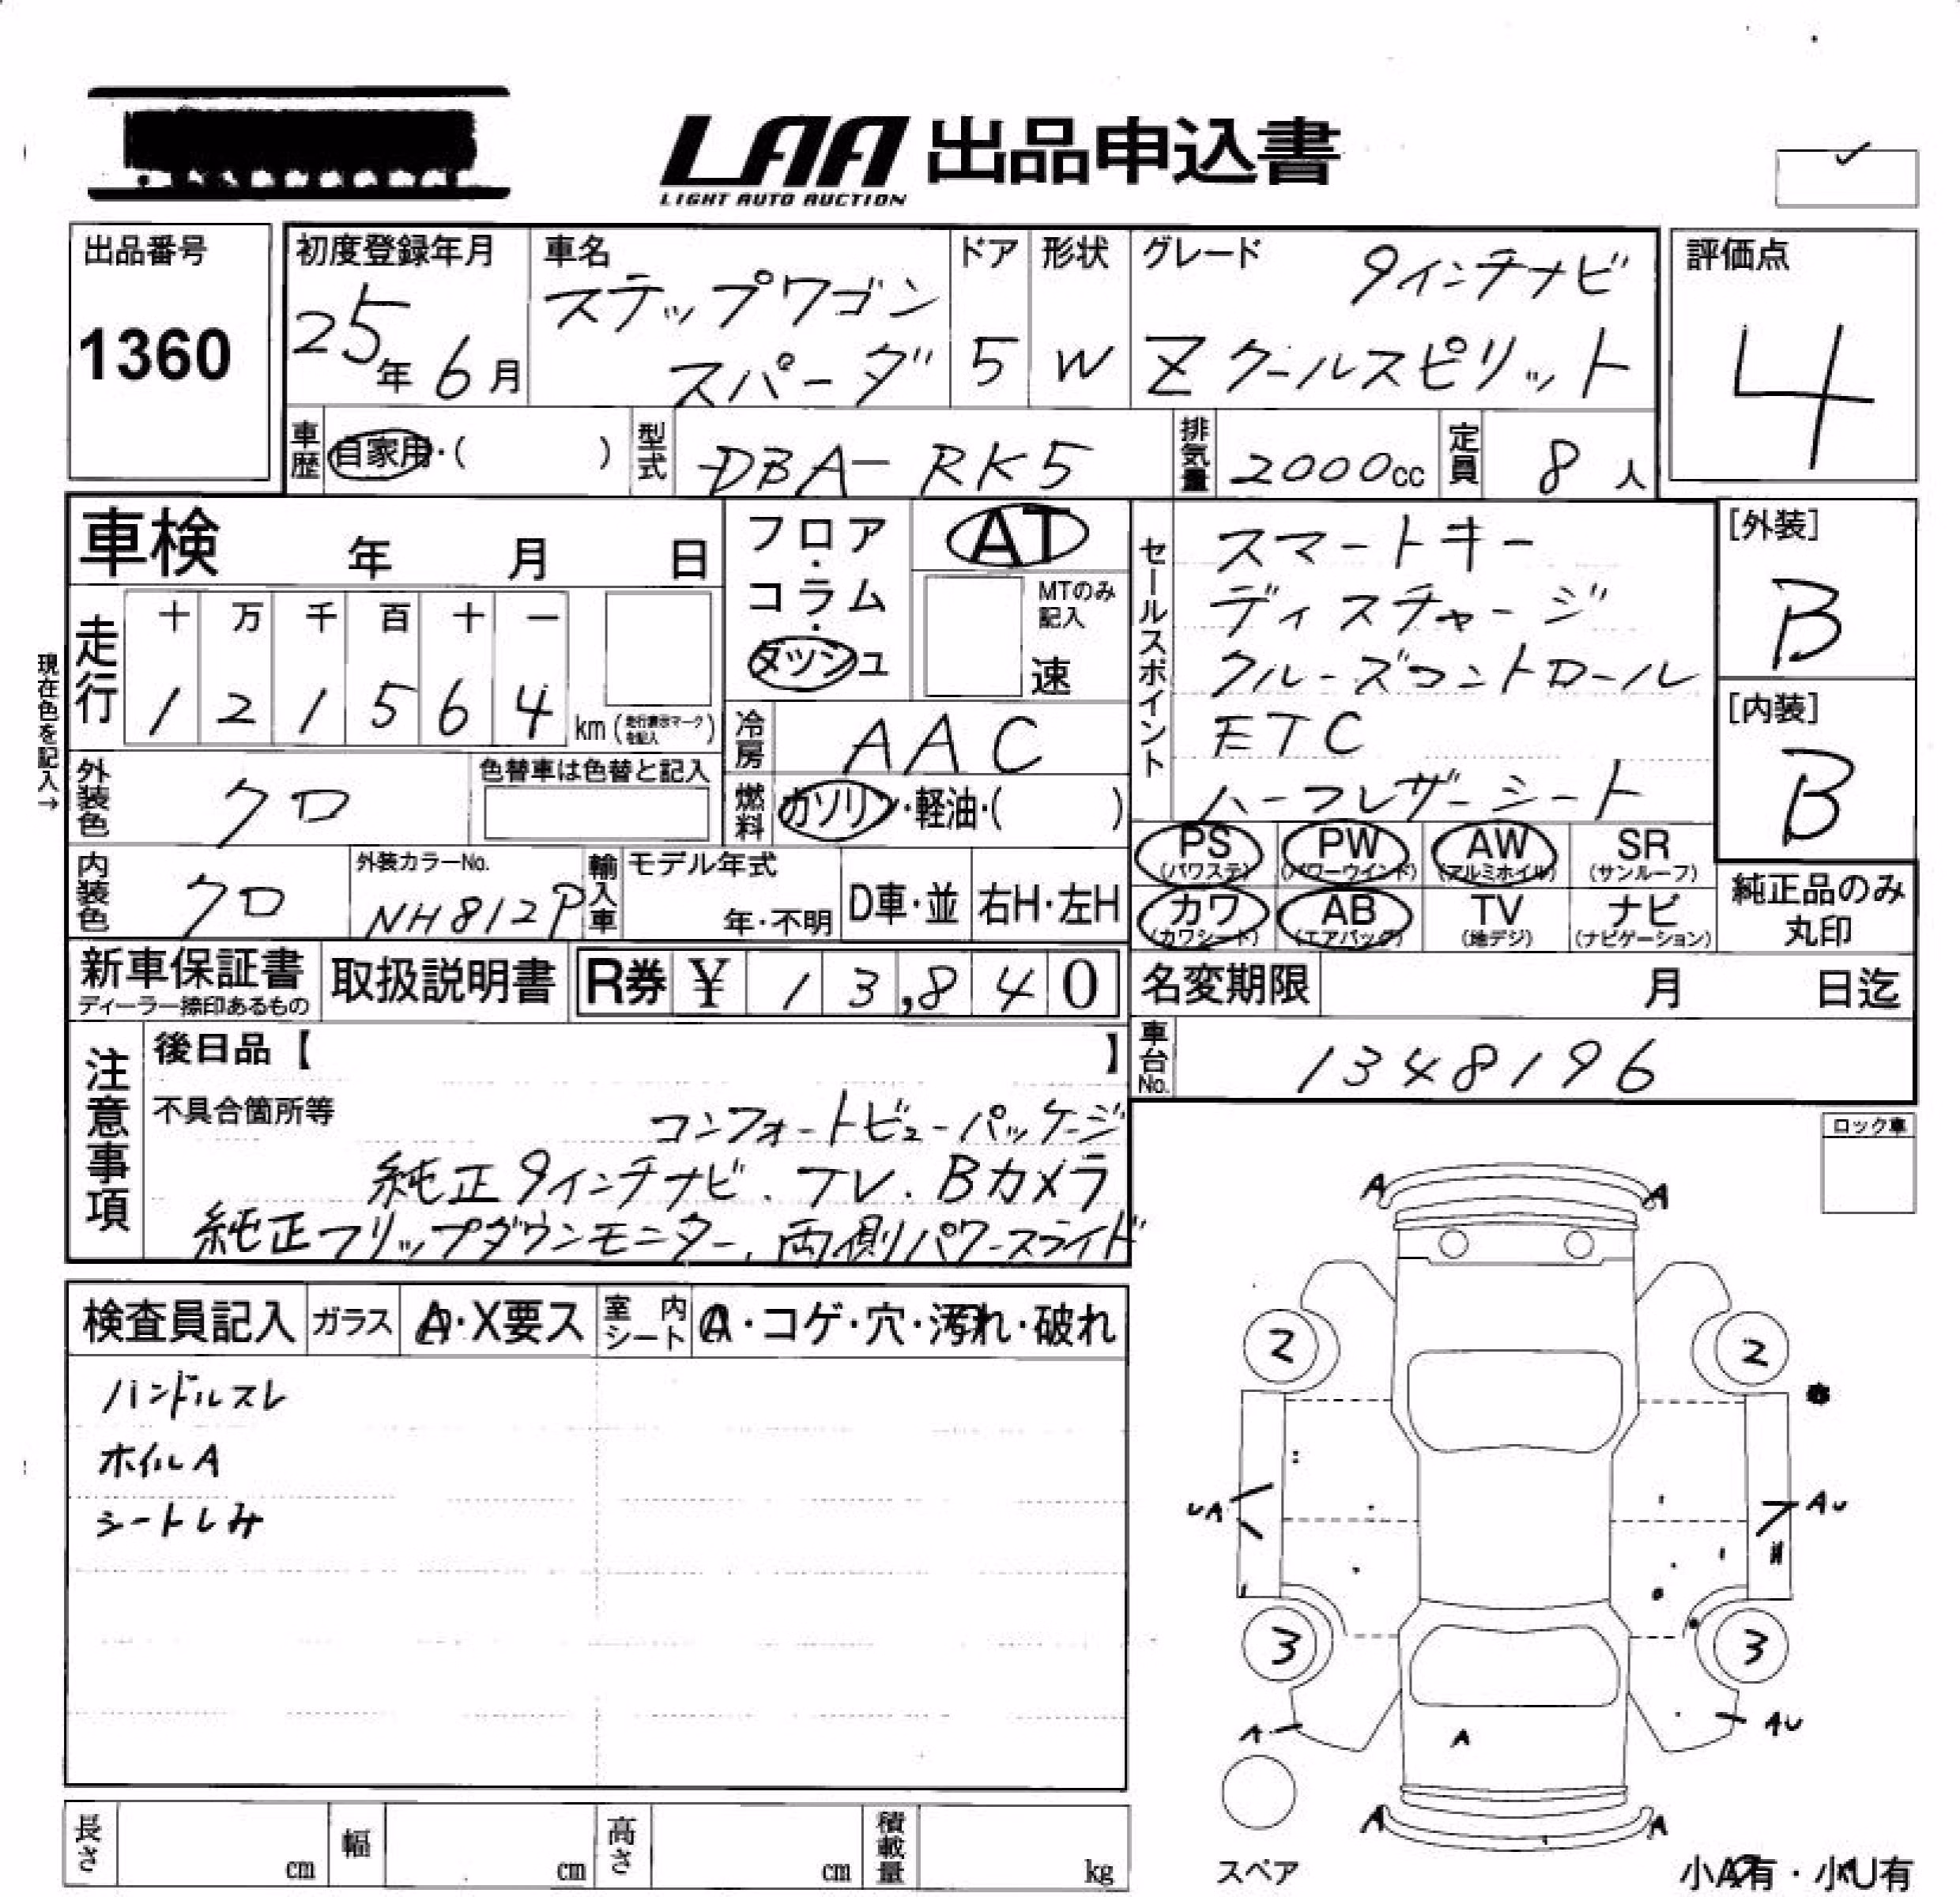 LAA 出品申込書
LIGHT AUTO AUCTION
出品番号
1360
初度登録年月
25年 6月
車名
ステップワゴン
スパーダ
ドア
5
形状
W
グレード
9インチナビ
Z クールスピリット
評価点
4
車歴 自家用・( )
型式 DBA-RK5
排気量 2000cc
定員 8人
車検 年 月 日
フロア・コラム・ダッシュ
AT
MTのみ記入
速
セールスポイント
スマートキー
ディスチャージ
クルーズコントロール
ETC
ハーフレザーシート
[外装]
B
[内装]
B
現在色を記入→
走行
十 万 千 百 十 一
1 2 1 5 6 4 km (走行表示マークを記入)
冷房 AAC
外装色 クロ
色替車は色替と記入
燃料 ガソリン・軽油・( )
PS (パワステ)
PW (パワーウインド)
AW (アルミホイル)
SR (サンルーフ)
内装色 クロ
外装カラーNo.
NH812P
輸入車
モデル年式
年・不明
D車・並
右H・左H
カワ (カワシート)
AB (エアバッグ)
TV (地デジ)
ナビ (ナビゲーション)
純正品のみ
丸印
新車保証書
ディーラー捺印あるもの
取扱説明書
R券 ¥ 13,840
名変期限 月 日迄
車台No. 1348196
注意事項
後日品【 】
不具合箇所等
コンフォートビューパッケージ
純正9インチナビ、TV、Bカメラ
純正フリップダウンモニター、両側パワースライド
ロック車
検査員記入
ガラス
A・X要ス
室内シート
A・コゲ・穴・汚れ・破れ
ハンドルスレ
ホイルA
シートしみ
A A
2 2
UA AU
3 3
A A AU
A A
スペア
小A有・小U有
長さ cm
幅 cm
高さ cm
積載量 kg